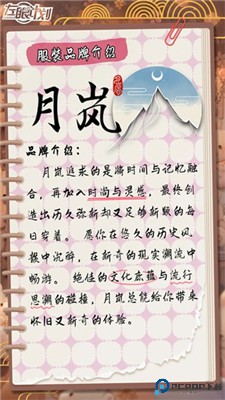 服装品牌介绍
月岚
品牌介绍:
月岚追求的是将时间与记忆融
合，再加入时尚与灵感，最终创
造出历久弥新却又足够新颖的每
日穿着。愿你在悠久的历史风
韵中沉醉，在新奇的现实潮流中
畅游。绝佳的文化底蕴与流行
思潮的碰撞，月岚总能给你带来
怀旧又新奇的体验。